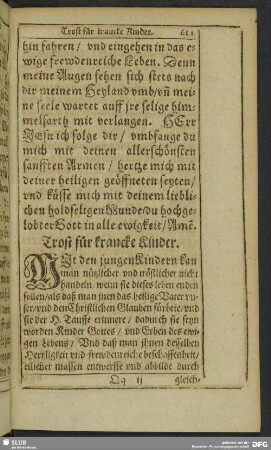 Trost für krancke Kinder. 611
hin fahren / vnd eingehen in das e-
wige frewdenreiche Leben. Denn
meine Augen sehen sich stets nach
dir meinem Heyland vmb / vñ mei-
ne seele wartet auff jre selige him-
melfarth mit verlangen. HErr
JEsu ich folge dir / vmbfange du
mich mit deinen allerschönsten
sanfften Armen / hertze mich mit
deiner heiligen geöffneten seyten /
vnd küsse mich mit deinem liebli-
chen holdseligen Munde / du hochge-
lobter Gott in alle ewigkeit / Amẽ.
Trost für krancke Kinder.
MIt den jungen Kindern kan
man nützlicher vnd tröstlicher nicht
handeln, wenn sie dieses leben enden
sollen / als daß man jnen das heilige Vater vn-
ser / vnd den Christlichen Glauben fürbete / vnd
sie der H. Tauffe erinnere / dadurch sie seyn
worden Kinder Gottes / vnd Erben des ewi-
gen Lebens / Vnd daß man jhnen desselben
Herrligkeit vnd frewdenreiche beschaffenheit /
etlicher massen entwerffe vnd abbilde durch
Qq ij gleich-
SLUB
DFG